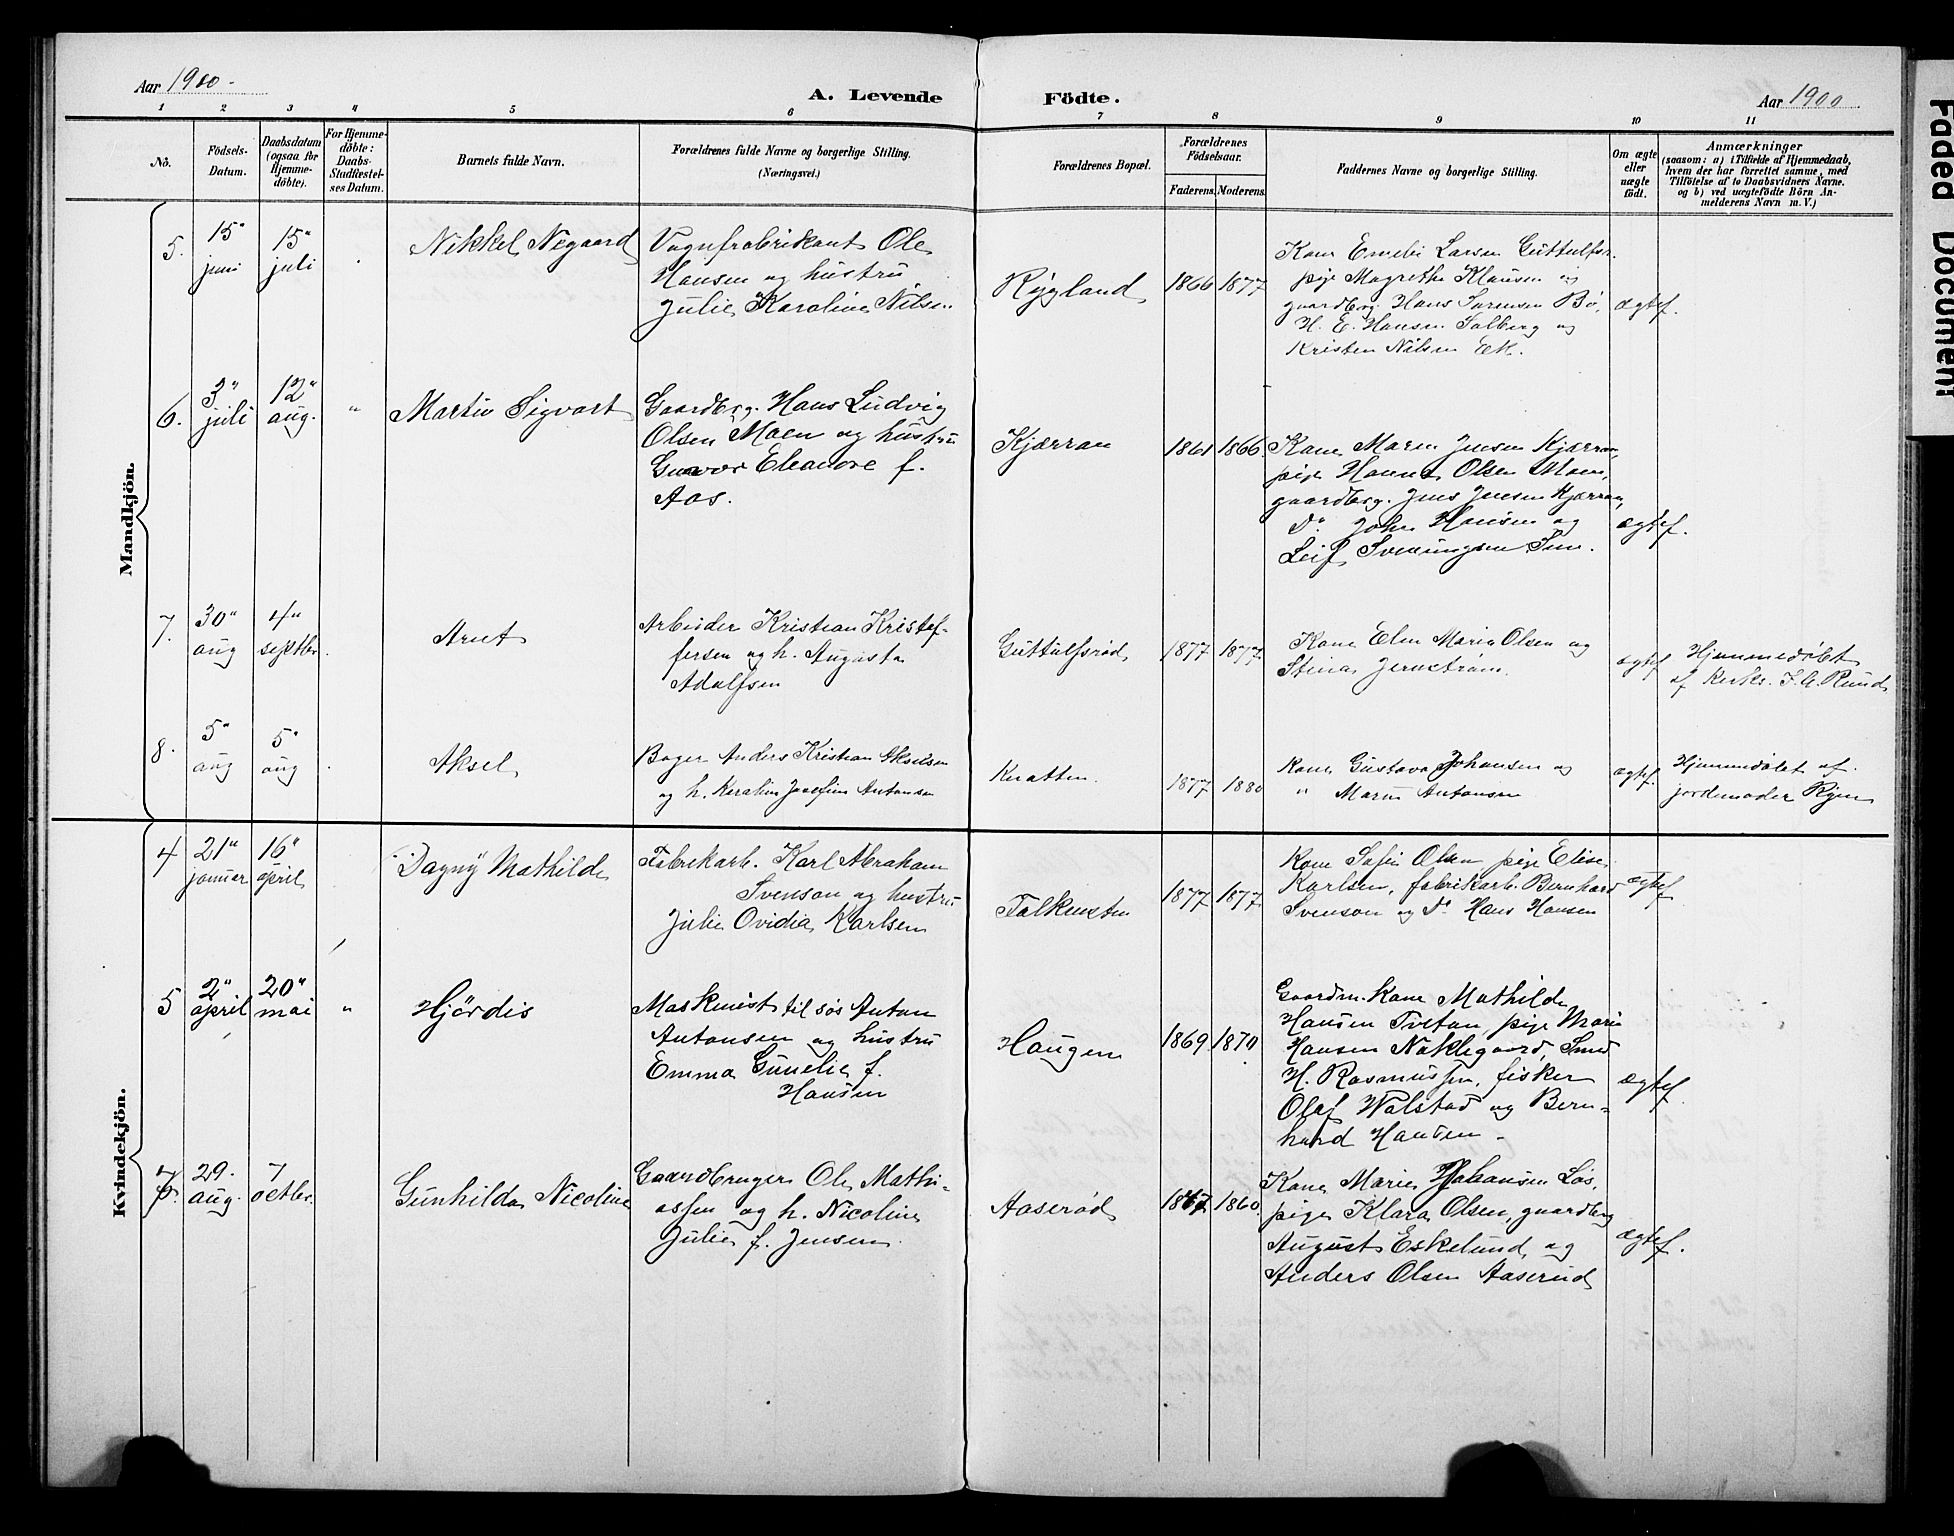 Aar 1900.
A. Levende Födte.
Aar 1900
1 2 3 4 5 6 7 8 9 10 11
Nö.
Födsels-Datum.
Daabsdatum (ogsaa for Hjemme-döbte).
For Hjemme-döbte: Daabs-Stadfestel-ses Datum.
Barnets fulde Navn.
Forældrenes fulde Navne og borgerlige Stilling.
(Næringsvei.)
Forældrenes Bopæl.
Forældrenes Födselsaar.
Faderens. Moderens.
Faddernes Navne og borgerlige Stilling.
Om ægte eller uægte födt.
Anmærkninger
(saasom: a) i Tilfælde af Hjemmedaab,
hvem der har forrettet samme, med
Tilföielse af to Daabsvidners Navne.
og b) ved uægtefödte Börn An-
melderens Navn m. V.)
Mandkjön.
5.
15"
juni
15"
juli
Nikkel Nygaard
Vognfabrikant Ole
Hansen og hustru
Julie Karoline Nilsen
Rygland
1866 1877
Kone Emelie Larsen Guttulfsr.
pige Magrethe Klausen og
gaardbrg. Hans Sørensen Bø,
H. E. Hansen Solberg og
Kristen Nilsen Ek.
ægtef.
6.
3"
juli
12"
aug.
"
Martin Sigvart
Gaardbrg. Hans Ludvig
Olsen Moen og hustru
Gunvor Eleanore f.
Aas.
Kjærran
1861 1866.
Kone Maren Jensen Kjærran,
pige Hanna Olsen Moen,
gaardbrg. Jens Jensen Kjærran,
Do John Hansen og
Leif Sveningsen
ægtef.
7.
30"
aug
4"
septbr.
Arnt
Arbeider Kristian Kristof-
fersen og h. Augusta
Adolfsen
Guttulfsrød
1877 1877.
Kone Elen Marie Olsen og
Stina Jernstrøm.
ægtef
Hjemmedøbt
af Kirks. Rund
8.
5"
aug
5"
aug
Aksel
Bager Anders Kristian Akselsen
og h. Karoline Josefine Antonsen
Knatten.
1877 1880
Kone Gustava Johansen og
" Marie Antonsen
ægtef.
Hjemmedøbt af
jordemoder Ryen
Kvindekjön.
4
21"
januar
16"
april
Dagny Mathilde
Fabrikarb. Karl Abraham
Svenson og hustru
Julie Ovidia Karlsen
Falkensten
1877 1877.
Kone Sofie Olsen pige Elise
Karlsen, fabrikarb. Bernhard
Svenson og Do Hans Hansen
ægtef
5
2"
april
20"
mai
"
Hjørdis
Maskinist til søs Anton
Antonsen og hustru
Emma Gunelie f.
Hansen
Haugen
1869. 1870.
Gaardm. Kone Mathilde
Hansen Tvetan, pige Marie
Hansen Naklegaard, Smed
H. Rasmussen, fisker
Olaf Wolstad og Bern-
hard Hansen.
ægtef.
6.
29.
aug.
7
octbr.
Gunhilda Nicoline
Gaardbruger Ole Mathi-
assen og h. Nicoline
Julie f. Jensen.
Aaserød
1867. 1860.
Kone Marie Johansen Løs,
pige Klara Olsen, gaardbrg
August Eskelund og
Anders Olsen Aaserød
ægtef.
Faded Document